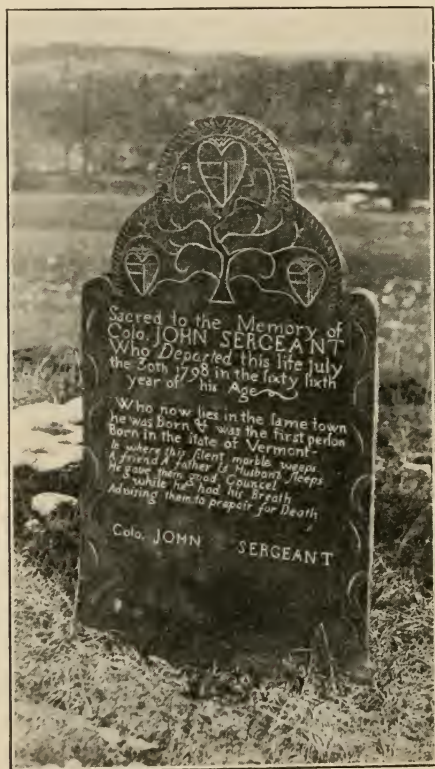 Sacred to the Memory of
Colo. JOHN SERGEANT
Who Departed this life July
the 30th 1798 in the ſixty ſixth
year of his Age
Who now lies in the ſame town
he was Born & was the first perſon
Born in the ſtate of Vermont
In where this ſilent marble weeps
A friend A father is Husbant ſleeps
He gave them good Councel
while he had his Breath
Advising them to prepair for Death
Colo. JOHN SERGEANT